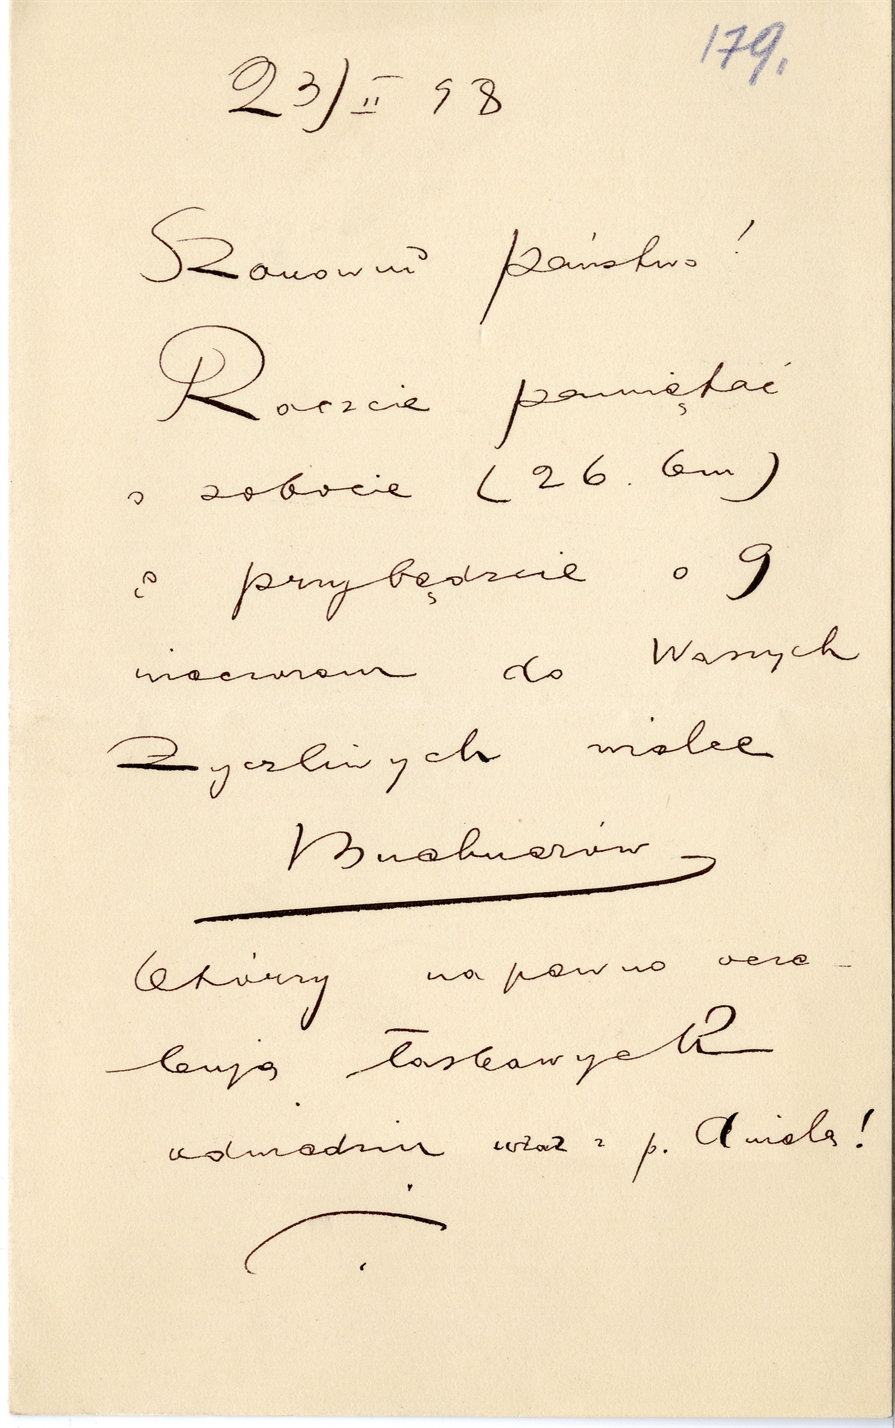 179.
23) II 98
Szanowni państwo!
Raczcie pamiętać
o sobocie (26. bm)
i przybądźcie o 9
wieczorem do Waszych
Życzliwych wielce
Buchnerów
którzy na pewno ocze-
kują łaskawych
odwiedzin wraz z p. Anielą!